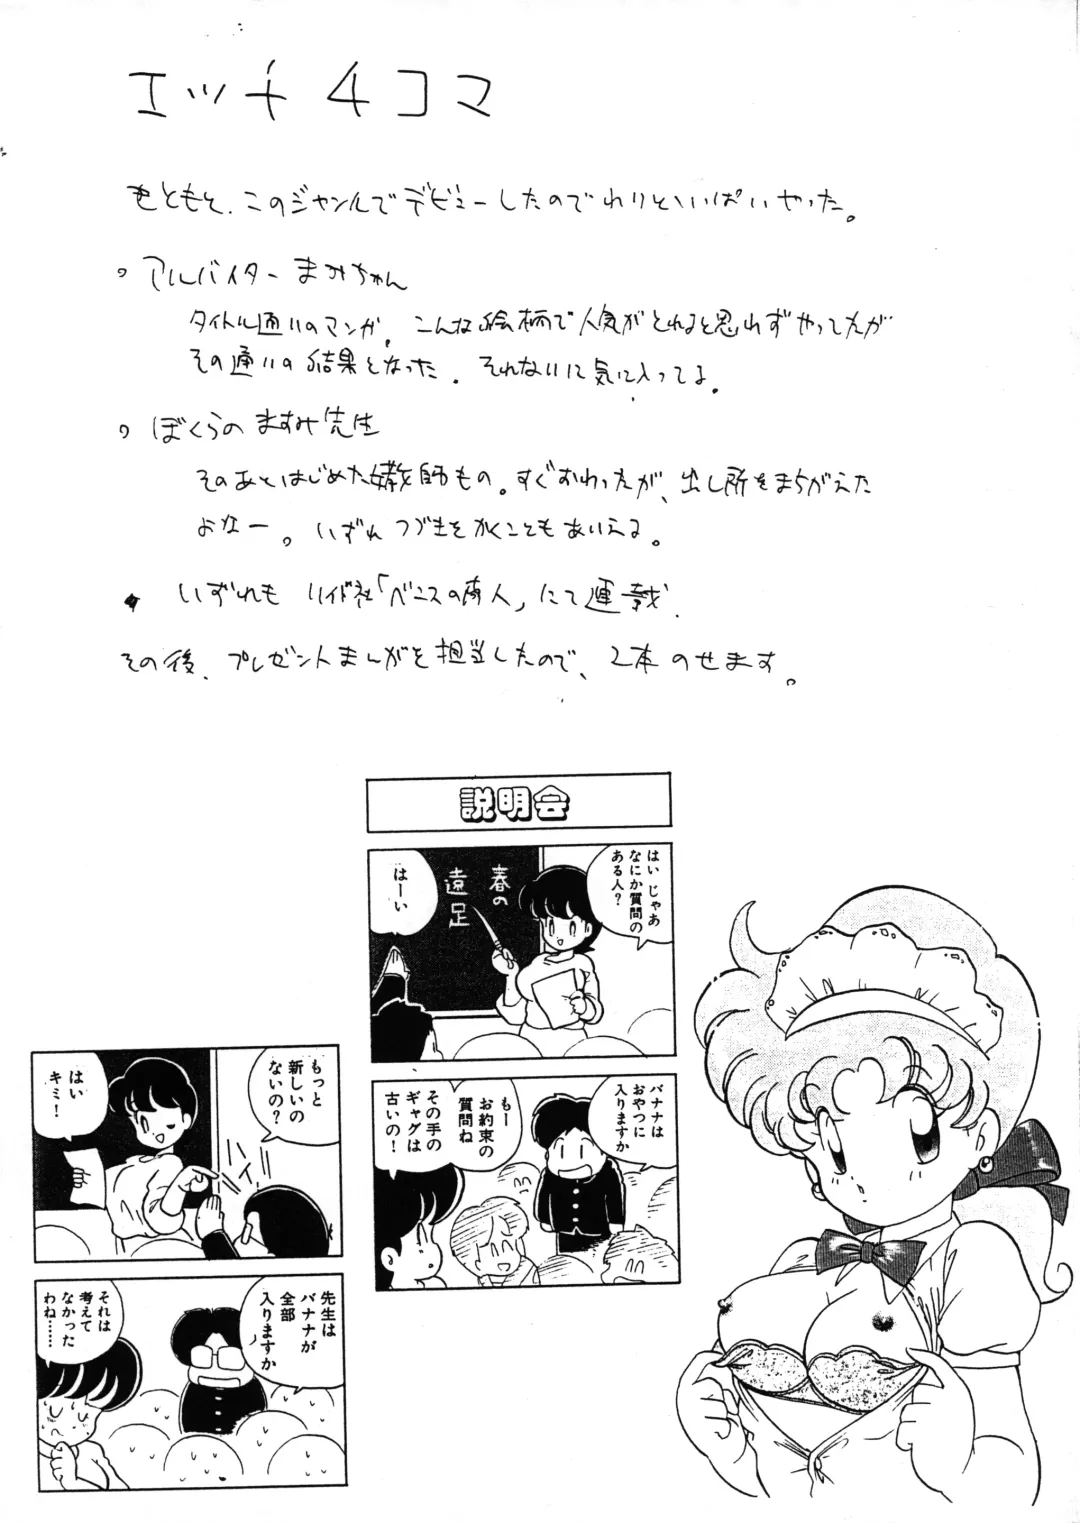 エッチ4コマ
もともと、このジャンルでデビューしたのでわりといっぱいやった。
。アルバイターまみちゃん
タイトル通りのマンガ。こんな絵柄で人気がとれると思わずやってたが
その通りの結果となった。それなりに気に入ってる。
。ぼくらのますみ先生
そのあとはじめた女教師もの。すぐおわったが、出し所をまちがえた
よなー。いずれつづきをかくこともあいえる。
・いずれも リイド社「ベニスの商人」にて連載.
その後、プレゼントまんがを担当したので、2本のせます。
説明会
はい じゃあ
なにか質問の
ある人?
春の
遠足
はーい
バナナは
おやつに
入りますか
もー
お約束の
質問ね
その手の
ギャグは
古いの!
もっと
新しいの
ないの?
はい
キミ!
先生は
バナナが
全部
入りますか
それは
考えて
なかった
わね……